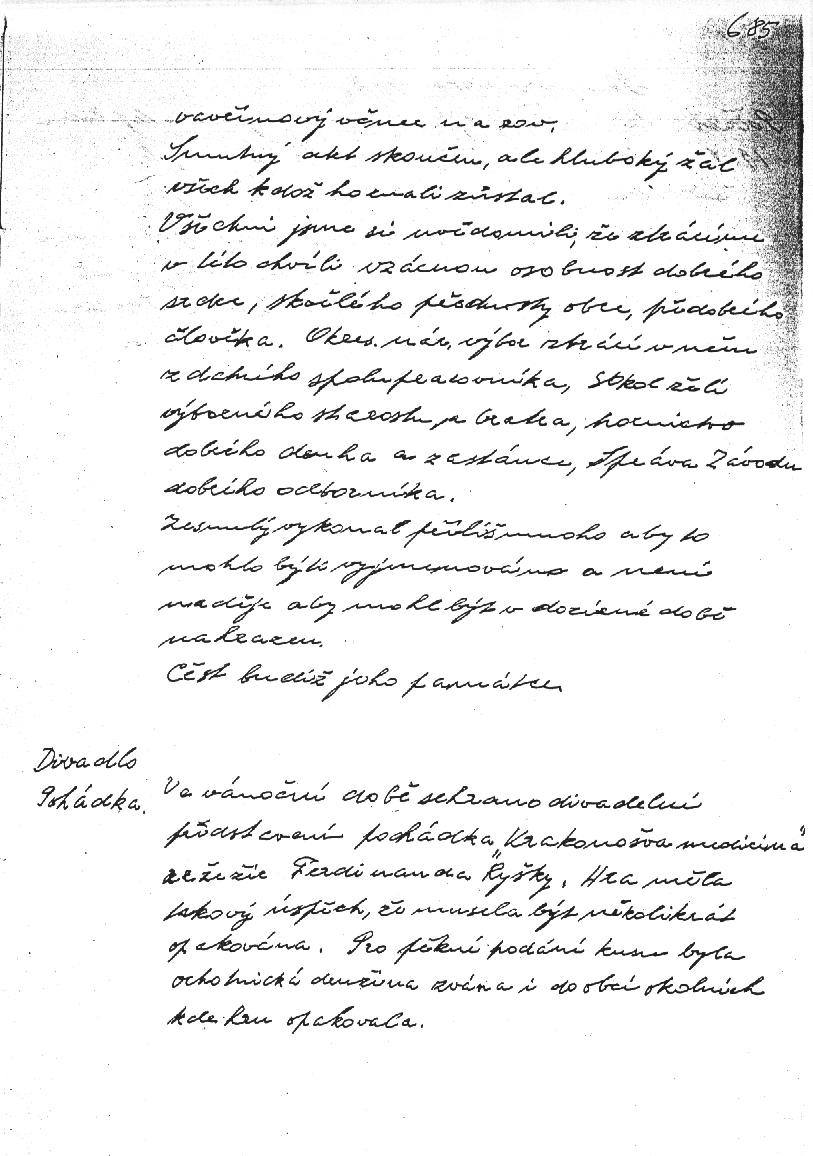 685
vavřínový věnec na rov.
Smutný akt skončen, ale hluboký žal
všech kdož ho znali zůstal.
Všichni jsme si uvědomili, že ztrácíme
v této chvíli vzácnou osobnost dobrého
srdce, skvělého předsedy obce, předobrého
člověka. Okres. nár. výbor ztrácí v něm
zdatného spolupracovníka, Sokol želí
výborného starostu, a bratra, hornictvo
dobrého druha a zastánce, Správa Závodu
dobrého odborníka.
Zesnulý vykonal příliš mnoho aby to
mohlo býti vyjmenováno a není
naděje aby mohl být v dozírné době
nahrazen.
Čest budiž jeho památce.
Divadlo
Pohádka.
Va vánoční době sehráno divadelní
představení pohádka „Krakonošva medicina"
režie Ferdinanda Ryšky. Hra měla
takový úspěch, že musela být několikrát
opakována. Pro pěkné podání kusu byla
ochotnická družina zvána i do obcí okolních
kde hru opakovala.